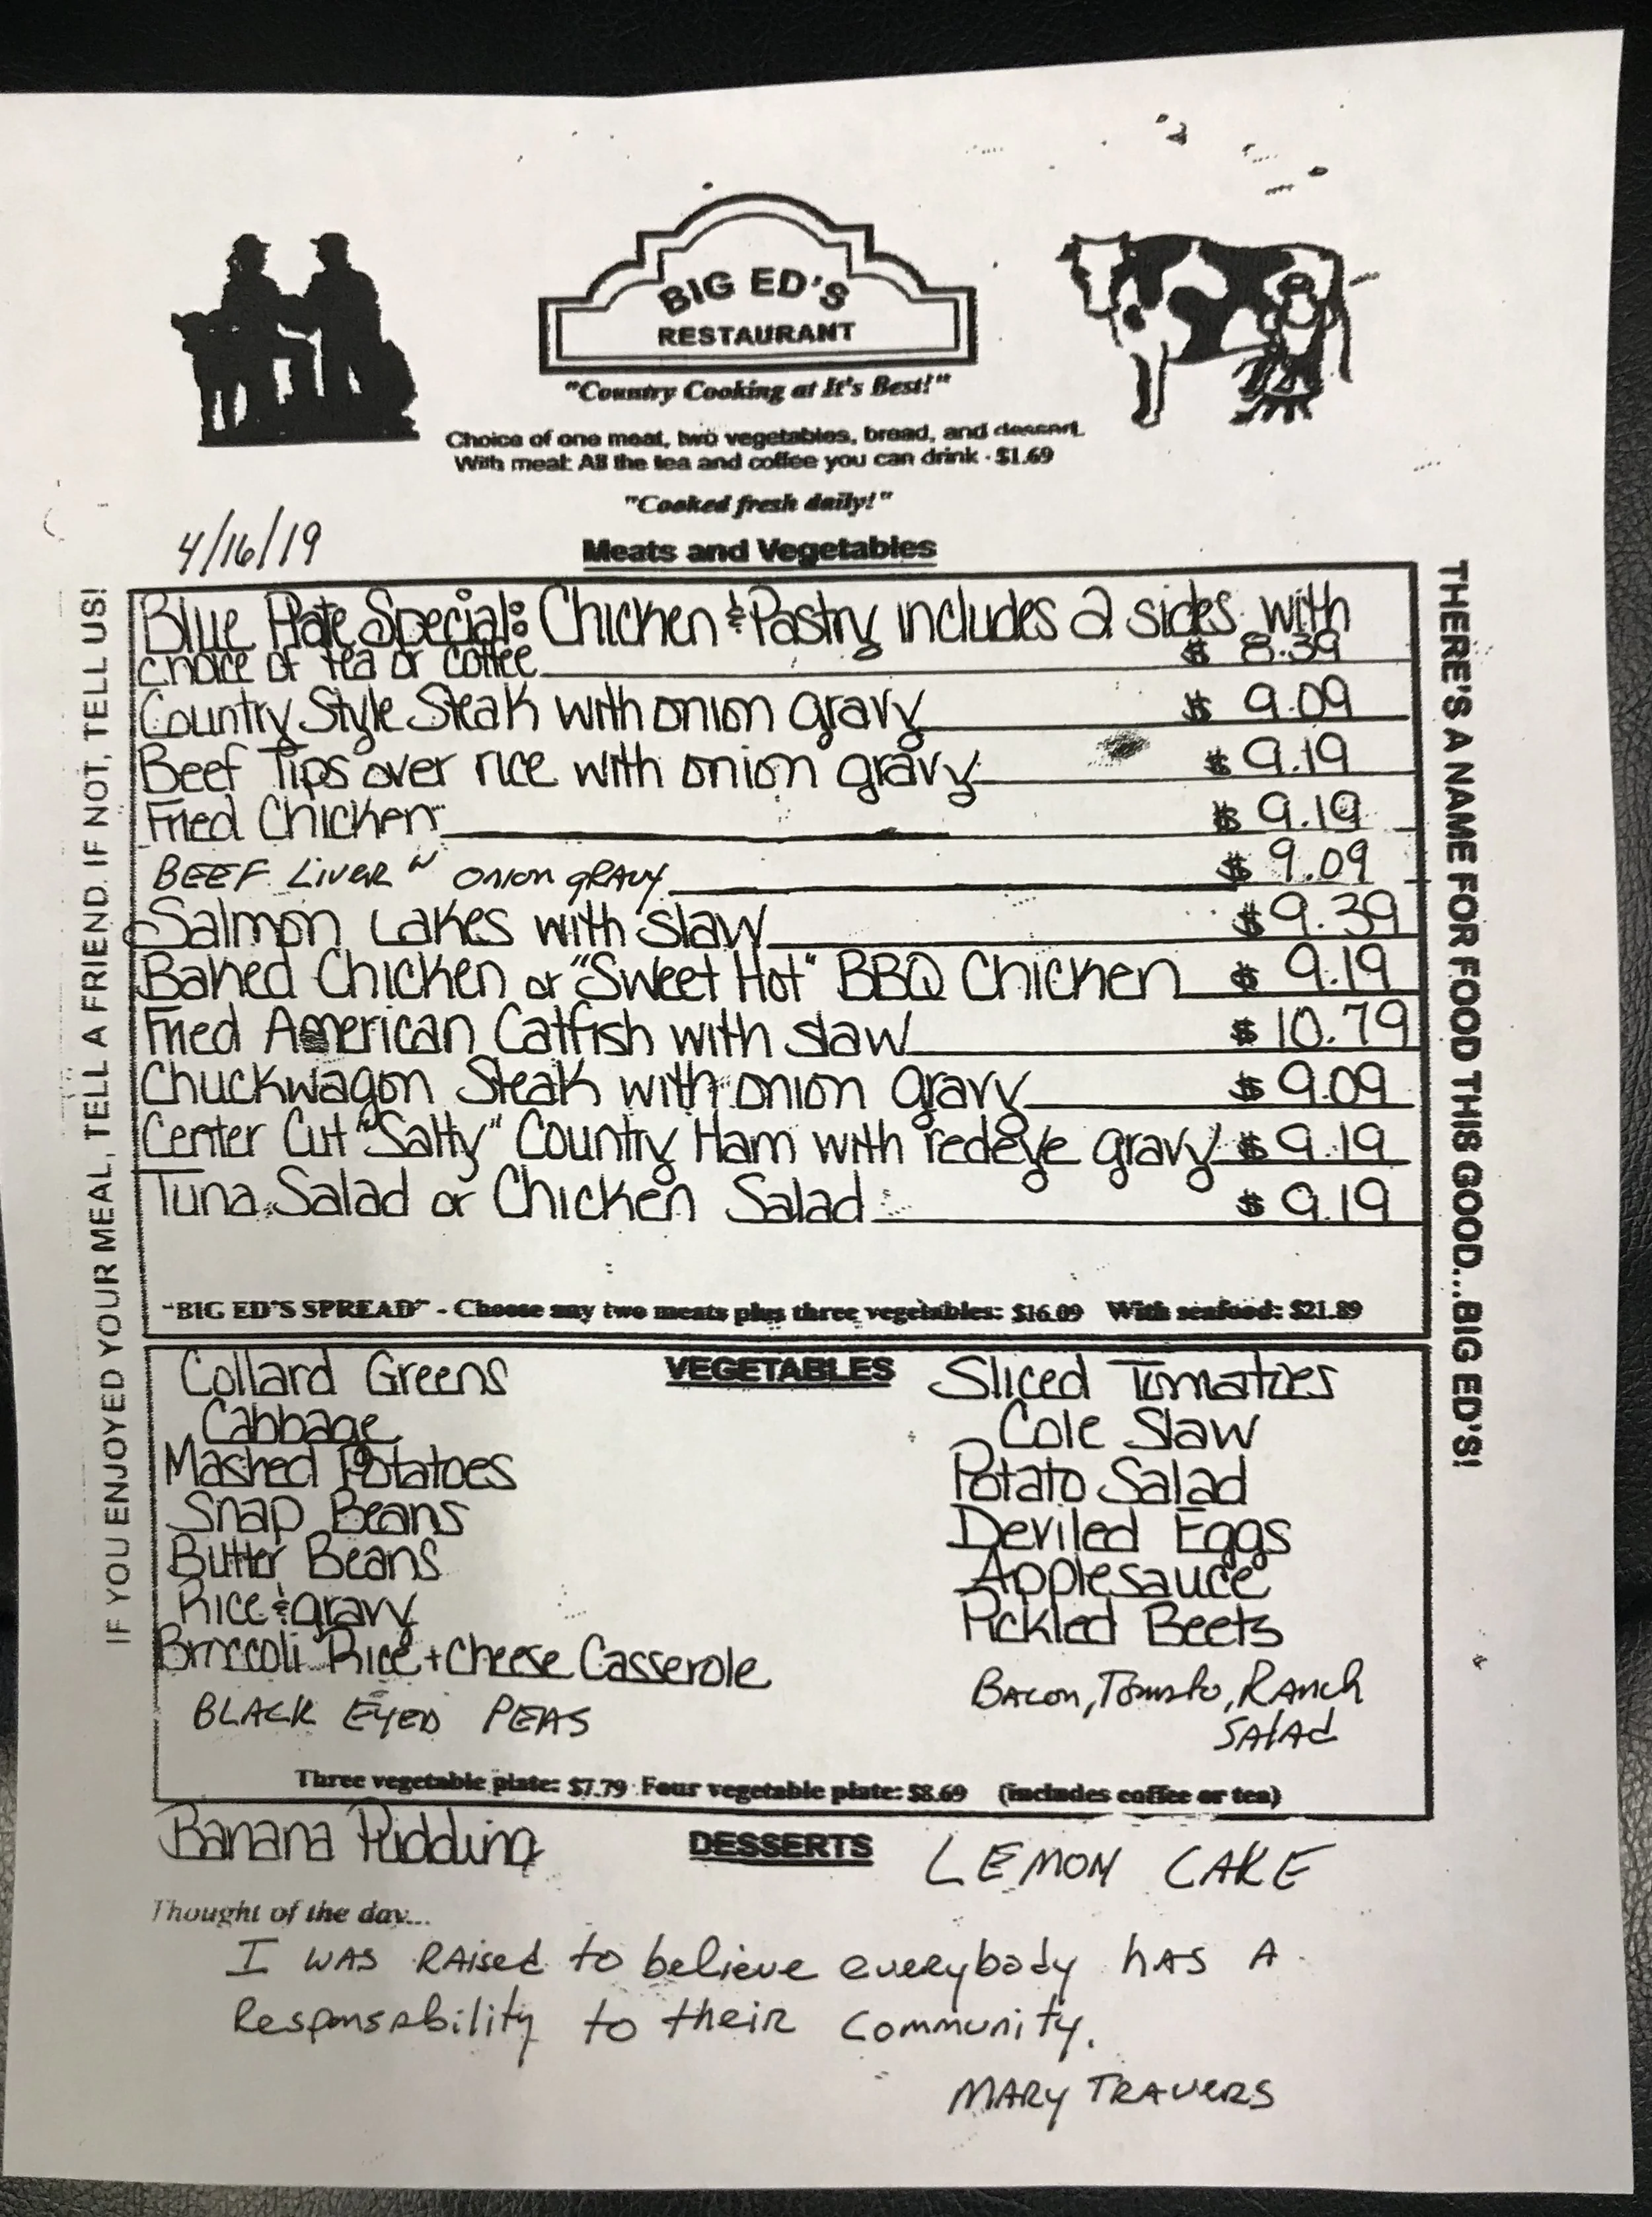 BIG ED'S
RESTAURANT
"Country Cooking at It's Best!"
Choice of one meat, two vegetables, bread, and dessert.
With meal: All the tea and coffee you can drink - $1.69
"Cooked fresh daily!"
4/16/19
Meats and Vegetables
IF YOU ENJOYED YOUR MEAL, TELL A FRIEND. IF NOT, TELL US!
Blue Plate Special: Chicken & Pastry includes 2 sides with
choice of tea or coffee $ 8.39
Country Style Steak with onion gravy $ 9.09
Beef Tips over rice with onion gravy $ 9.19
Fried Chicken $ 9.19
BEEF LIVER W ONION GRAVY $ 9.09
Salmon Cakes with slaw $ 9.39
Baked Chicken or "Sweet Hot" BBQ Chicken $ 9.19
Fried American Catfish with slaw $ 10.79
Chuckwagon Steak with onion gravy $ 9.09
Center Cut "Salty" Country Ham with redeye gravy $ 9.19
Tuna Salad or Chicken Salad $ 9.19
"BIG ED'S SPREAD" - Choose any two meats plus three vegetables: $16.09 With seafood: $21.89
THERE'S A NAME FOR FOOD THIS GOOD...BIG ED'S!
VEGETABLES
Collard Greens
Cabbage
Mashed Potatoes
Snap Beans
Butter Beans
Rice & gravy
Broccoli Rice + Cheese Casserole
BLACK EYED PEAS
Sliced Tomatoes
Cole Slaw
Potato Salad
Deviled Eggs
Applesauce
Pickled Beets
BACON, TOMATO, RANCH
SALAD
Three vegetable plate: $7.79 Four vegetable plate: $8.69 (includes coffee or tea)
Banana Pudding DESSERTS LEMON CAKE
Thought of the day...
I WAS RAISED to believe everybody HAS A
Responsability to their community.
MARY TRAVERS